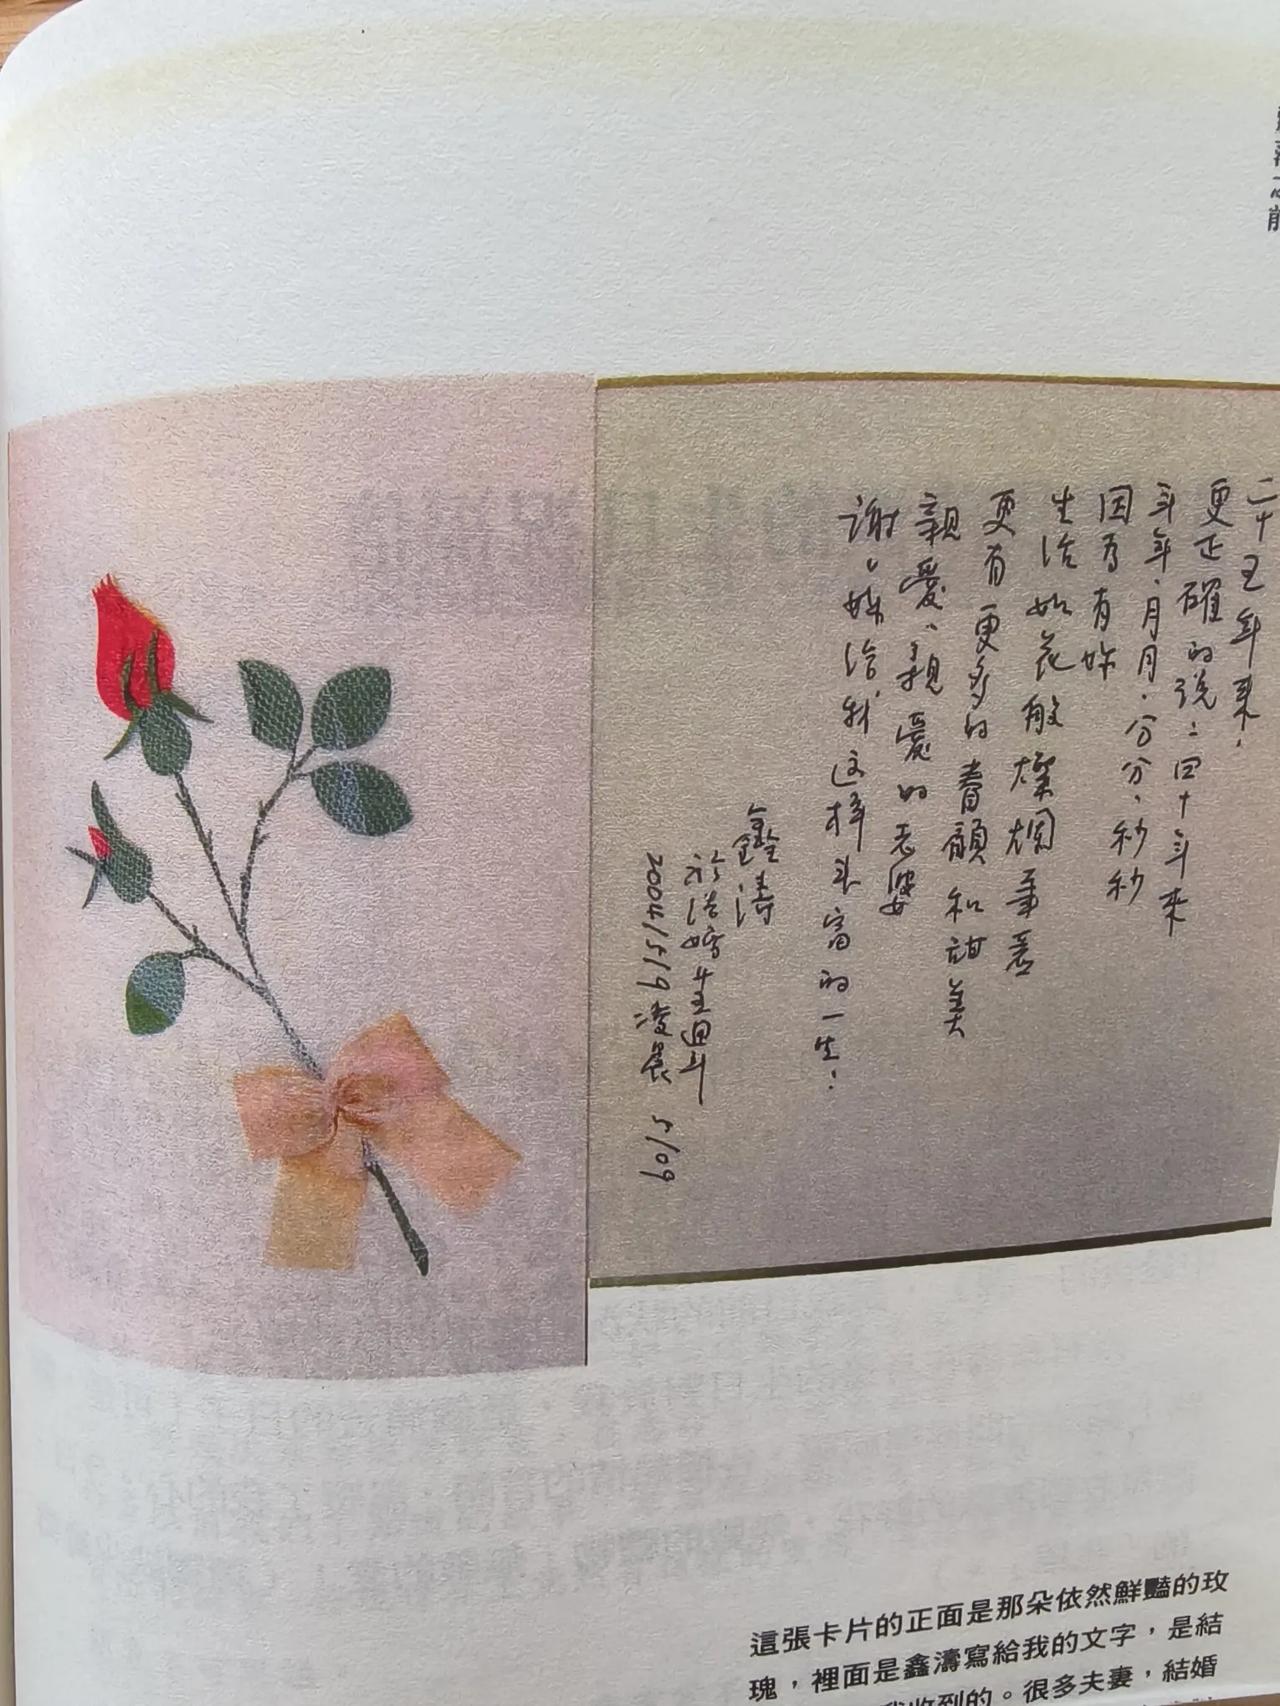 二十五年來，
更正確的說：四十年來
年年、月月、分分、秒秒
因為有妳
生活如花般燦爛華麗
更有更多的書韻和甜美
親愛、親愛的老婆
謝謝妳給我這樣豐富的一生！
鑫濤
於結婚廿五週年
2004/5/9凌晨 5/09
這張卡片的正面是那朵依然鮮豔的玫
瑰，裡面是鑫濤寫給我的文字，是結
我收到的。很多夫妻，結婚